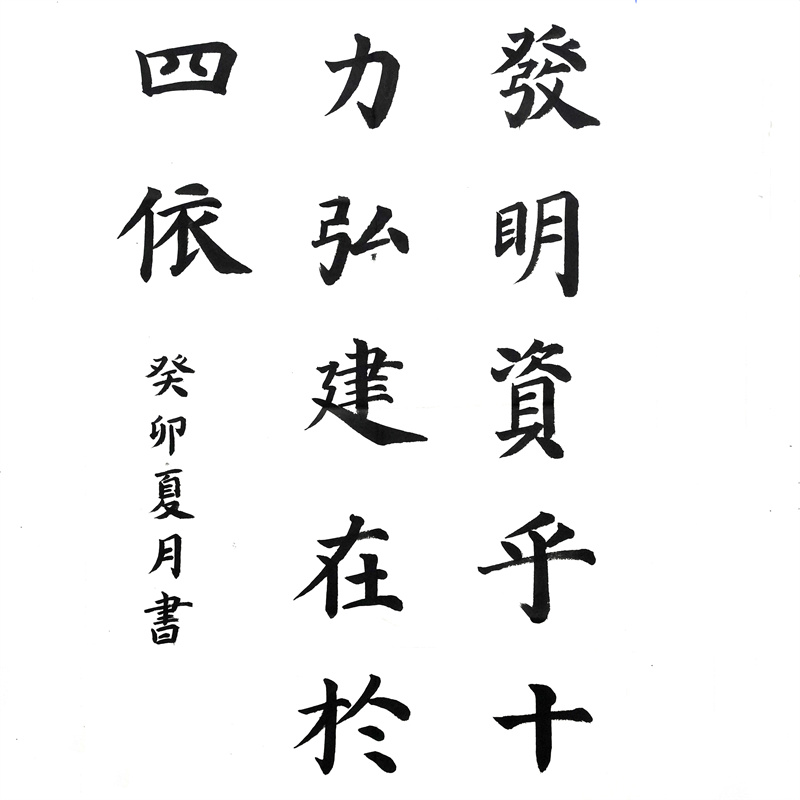 發明資乎十
力弘建在於
四依
癸卯夏月書